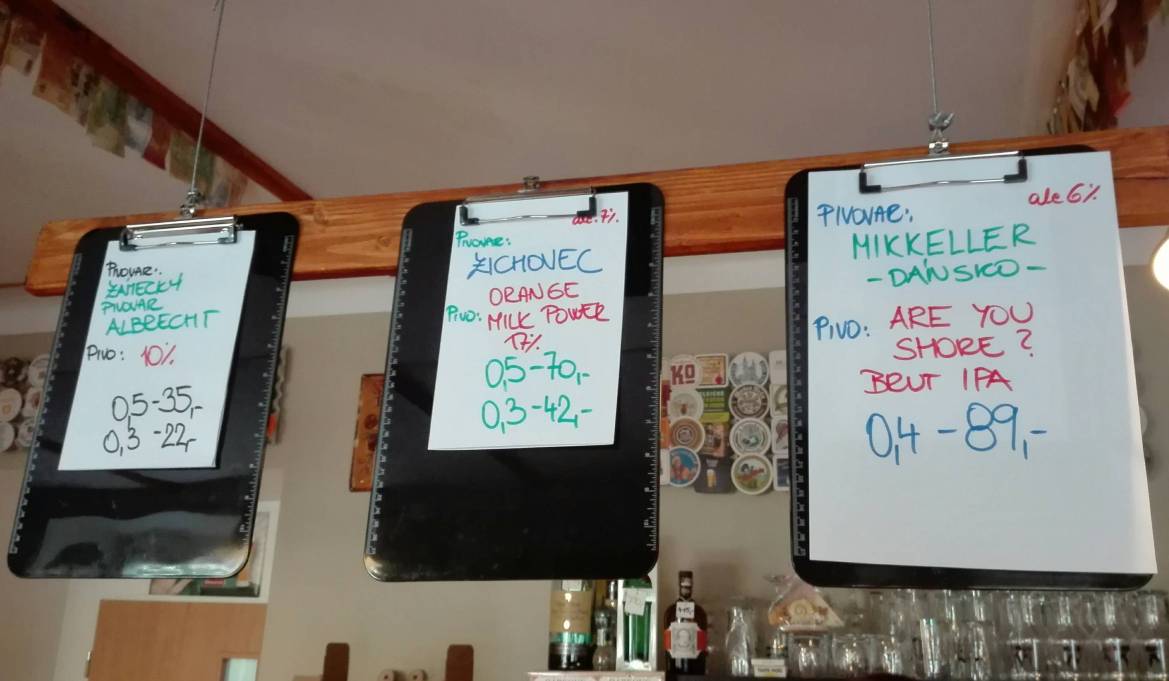 PIVOVAR:
ZÁMECKÝ
PIVOVAR
ALBRECHT
PIVO: 10%
0,5-35,-
0,3-22,-
alc. 7%
PIVOVAR:
ZICHOVEC
ORANGE
PIVO: MILK POWER
17%
0,5-70,-
0,3-42,-
alc 6%
PIVOVAR:
MIKKELLER
-DÁNSKO-
PIVO: ARE YOU
SHORE?
BRUT IPA
0,4-89,-
KO